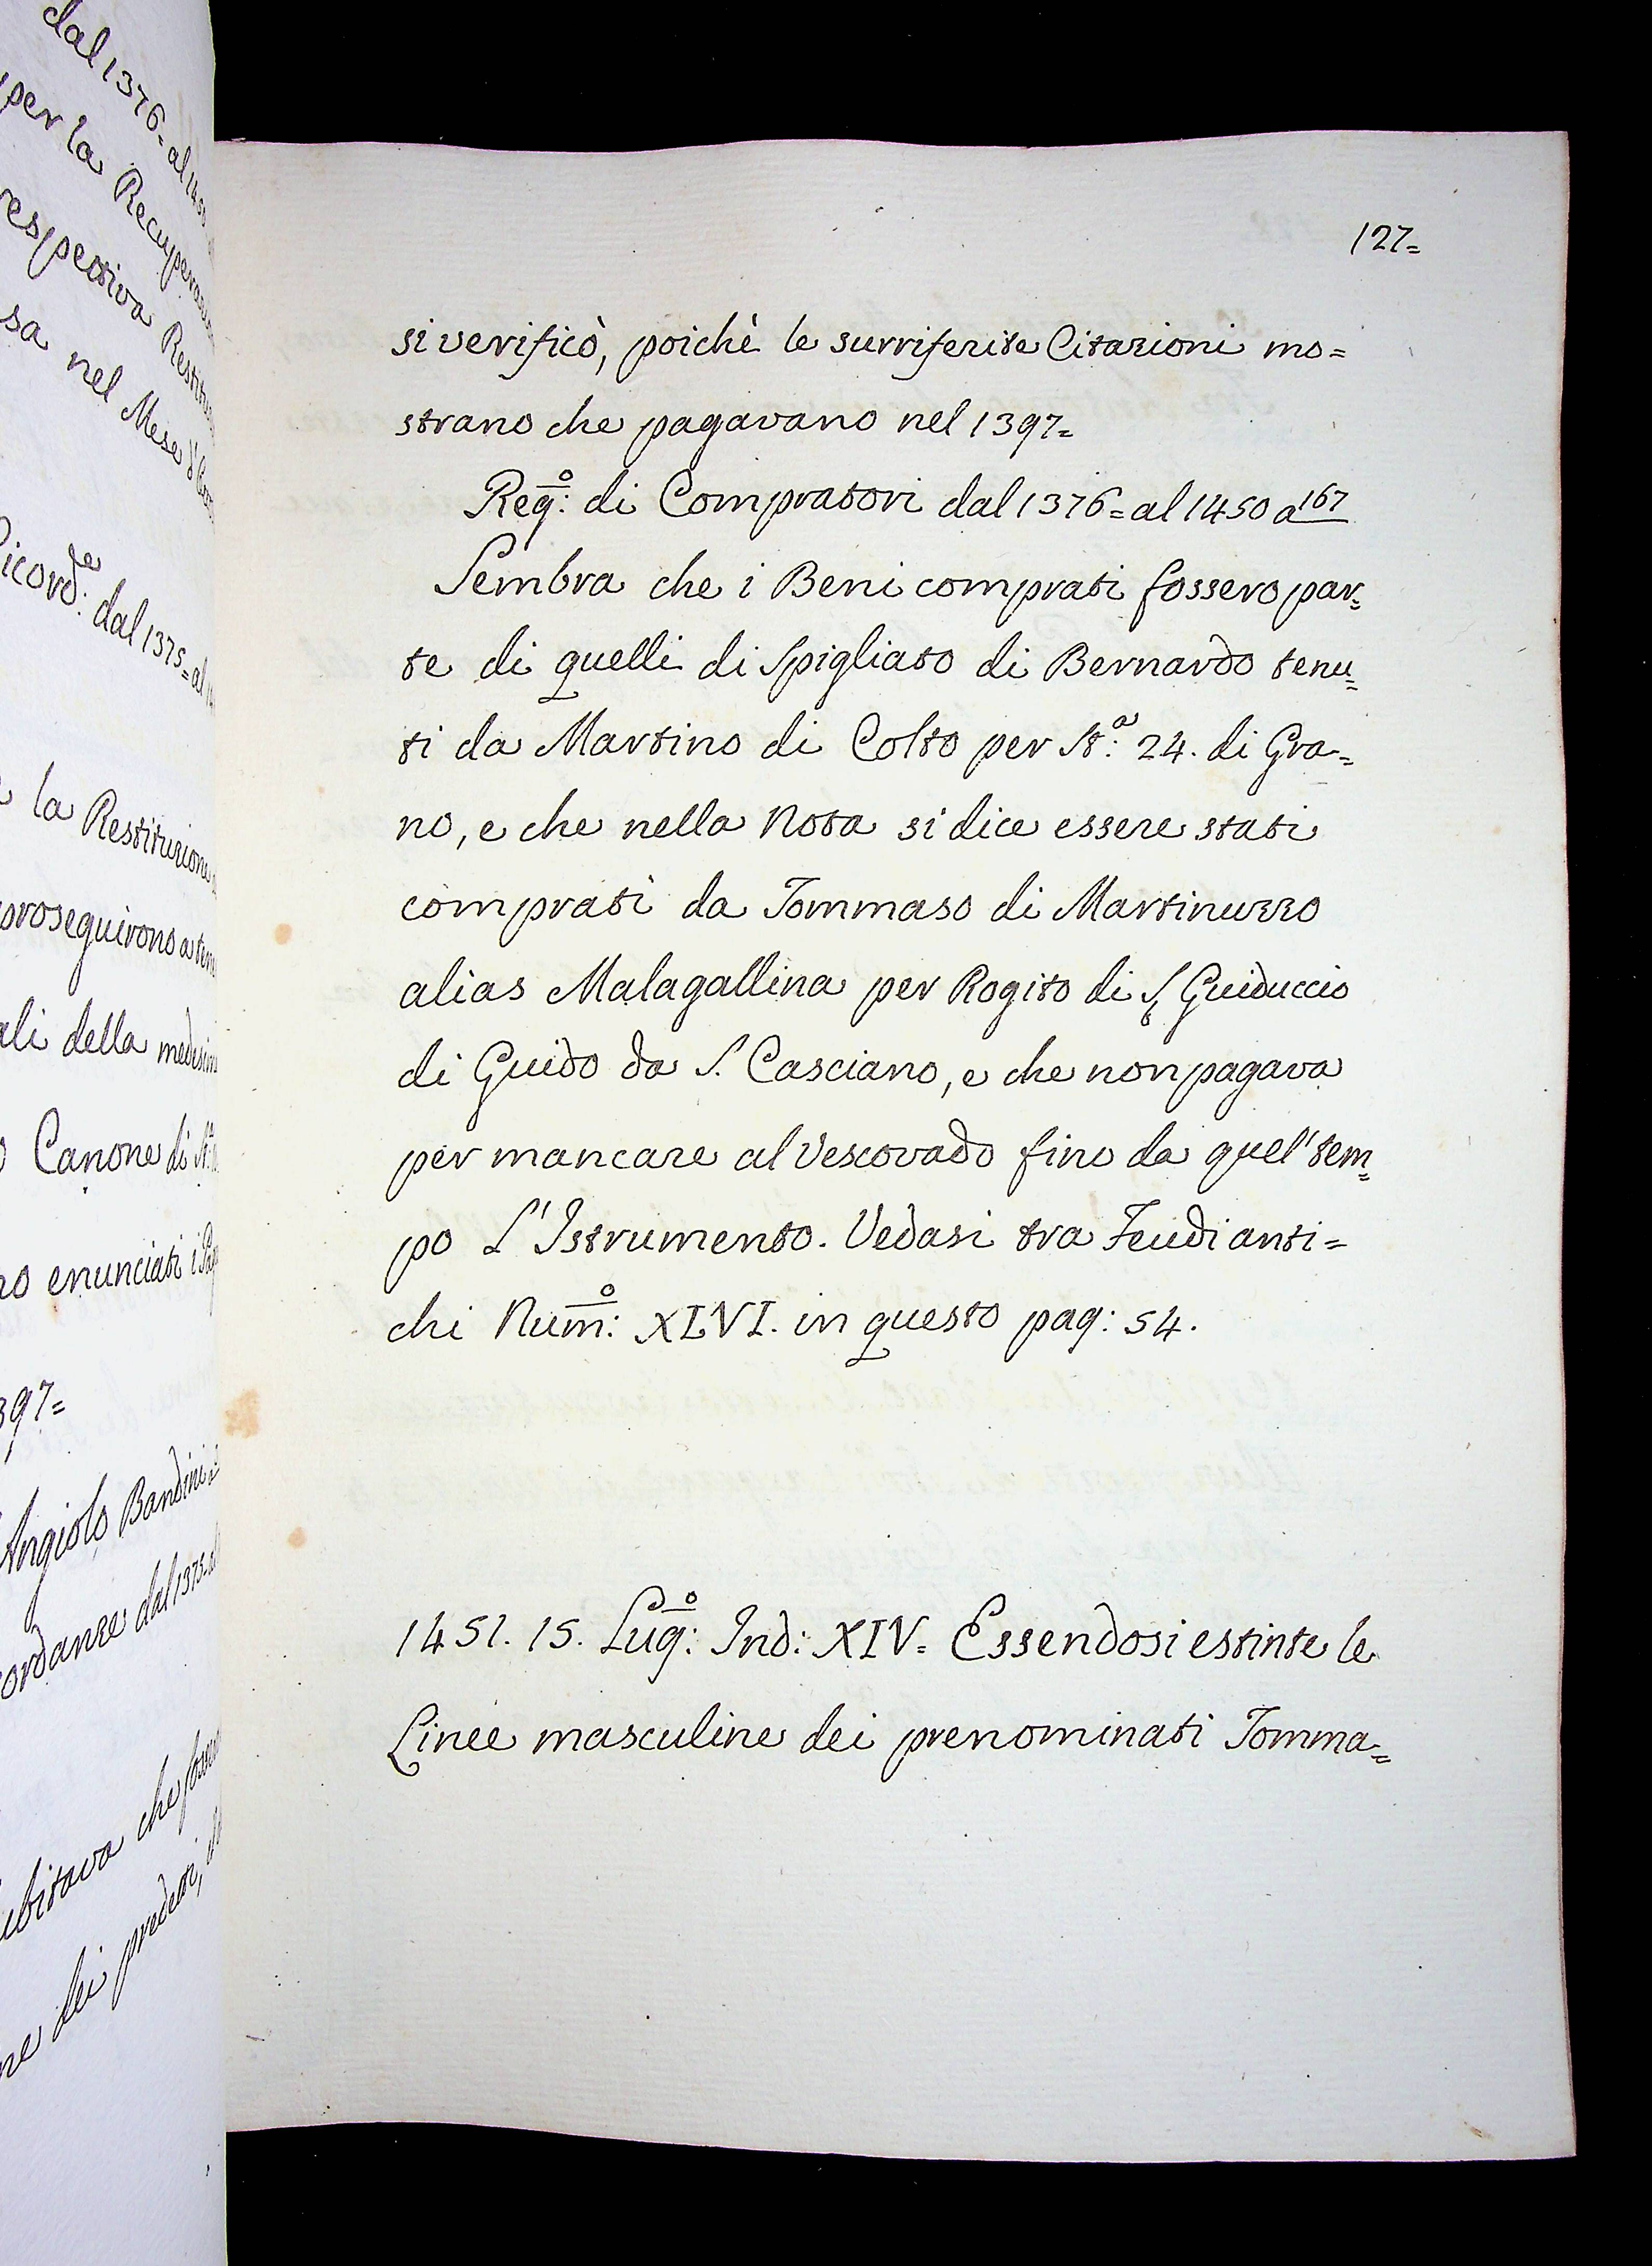 dal 1376= al 1450
per la
respettiva
sa nel Mese
Ricord:e dal 1375= al
la Restituzione
proseguirono a
ali della medesima
Canone di
no enunciati i
397=
Angiolo Bandini
ordanze dal 1375=
ubitava che
ne dei predetti,
127=
si verificò, poichè le surriferite Citazioni mo=
strano che pagavano nel 1397=
Reg:o di Compratori dal 1376= al 1450 a 167
Sembra che i Beni comprati fossero par=
te di quelli di Spigliato di Bernardo tenu=
ti da Martino di Colto per St:a 24. di Gra=
no, e che nella Nota si dice essere stati
comprati da Tommaso di Martinuzzo
alias Malagallina per Rogito di S. Guiduccio
di Guido da S. Casciano, e che non pagava
per mancare al Vescovado fino da quel' tem=
po L' Istrumento. Vedasi tra Feudi anti=
chi Num:o XLVI. in questo pag: 54.
1451. 15. Lug:o Ind: XIV= Essendosi estinte le
Linee masculine dei prenominati Tomma=